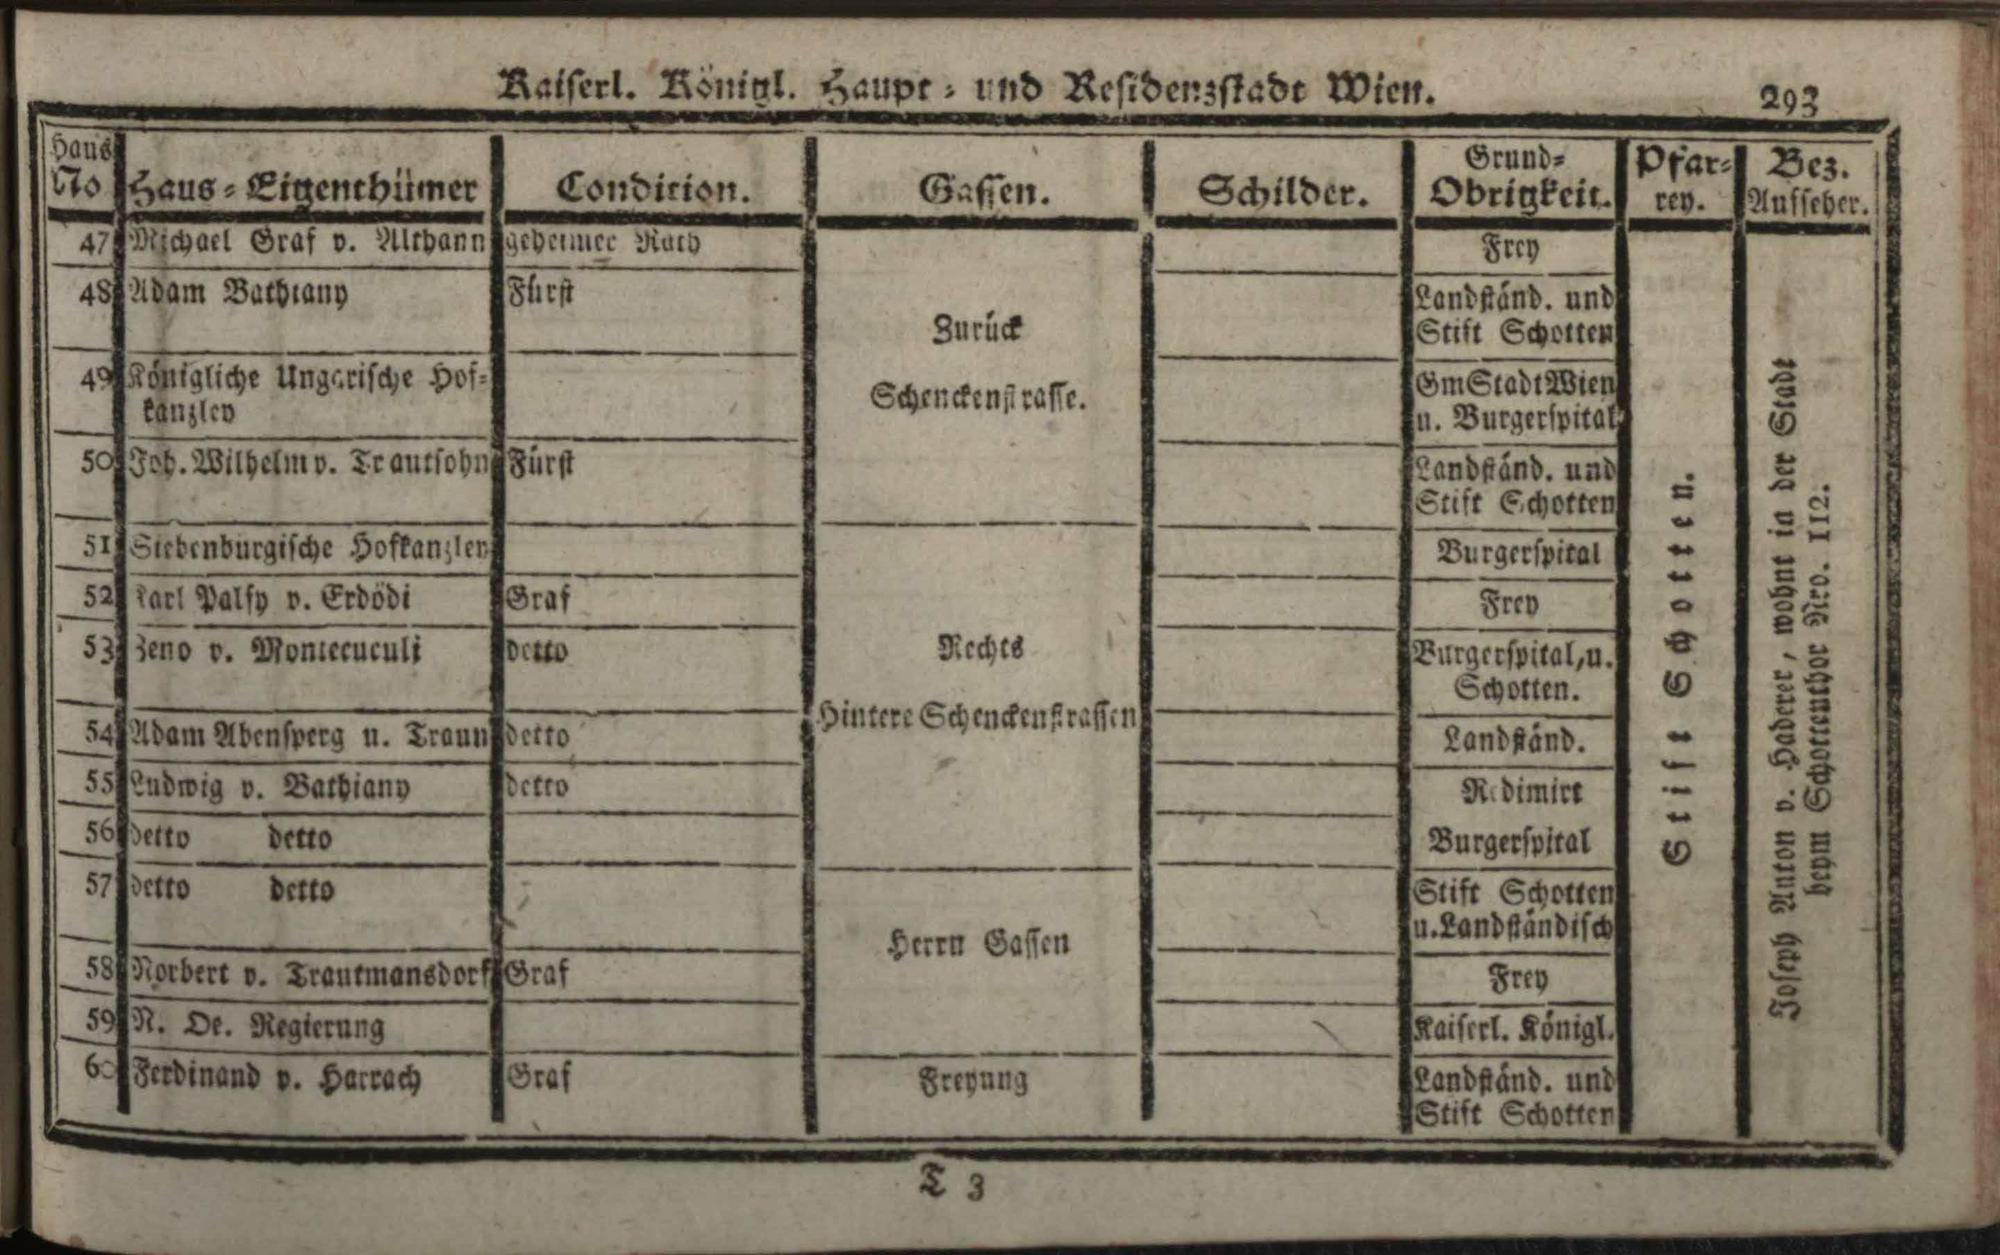 Kaiserl. Königl. Haupt- und Residenzstadt Wien. 293
Haus No Haus-Eigenthümer Condition. Gassen. Schilder. Grund-Obrigkeit. Pfar-rey. Bez. Aufseher.
47 Michael Graf v. Althann geheimer Rath Frey
48 Adam Bathiany Fürst Landständ. und
Stift Schotten
Zurück
49 Königliche Ungarische Hof- GmStadtWien
kanzley u. Burgerspital
Schenckenstrasse.
50 Joh. Wilhelm v. Trautsohn Fürst Landständ. und
Stift Schotten
51 Siebenburgische Hofkanzley Burgerspital
52 Karl Palfy v. Erdödi Graf Frey
53 Zeno v. Montecuculi detto Rechts Burgerspital, u.
Schotten.
Hintere Schenckenstrassen
54 Adam Abensperg u. Traun detto Landständ.
55 Ludwig v. Bathiany detto Redimirt
56 detto detto Burgerspital
57 detto detto Stift Schotten
u. Landständisch
Herrn Gassen
58 Norbert v. Trautmansdorf Graf Frey
59 N. Oe. Regierung Kaiserl. Königl.
60 Ferdinand v. Harrach Graf Freyung Landständ. und
Stift Schotten
Stift Schotten.
Joseph Anton v. Haderer, wohnt in der Stadt
beym Schottenthor Nro. 112.
T 3